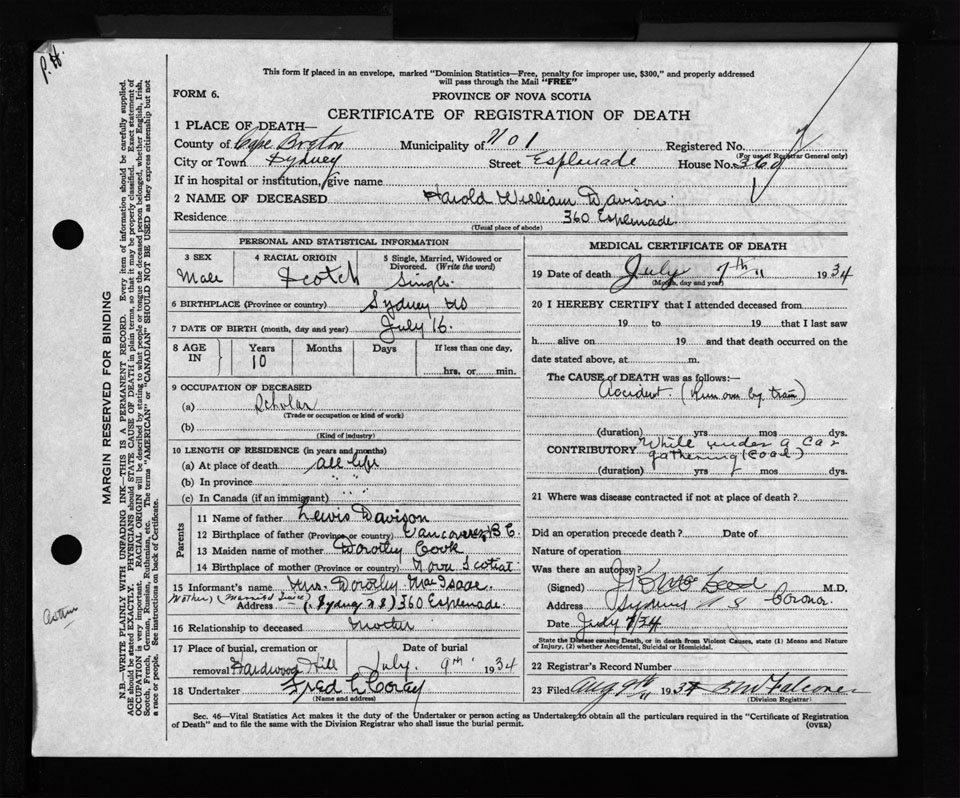 P.H.
This form if placed in an envelope, marked "Dominion Statistics—Free, penalty for improper use, $300," and properly addressed
will pass through the Mail "FREE"
FORM 6.
PROVINCE OF NOVA SCOTIA
CERTIFICATE OF REGISTRATION OF DEATH
1 PLACE OF DEATH—
County of Cape Breton Municipality of No 1 Registered No.
(For use of Registrar General only)
City or Town Sydney Street Esplanade House No. 360
If in hospital or institution, give name
2 NAME OF DECEASED Harold William Davison
Residence 360 Esplenade
(Usual place of abode)
PERSONAL AND STATISTICAL INFORMATION
3 SEX 4 RACIAL ORIGIN 5 Single, Married, Widowed or Divorced. (Write the word)
Male Scotch Single.
6 BIRTHPLACE (Province or country) Sydney NS
7 DATE OF BIRTH (month, day and year) July 16.
8 AGE IN Years Months Days If less than one day,
10 hrs. or min.
9 OCCUPATION OF DECEASED
(a) Scholar
(Trade or occupation or kind of work)
(b)
(Kind of industry)
10 LENGTH OF RESIDENCE (in years and months)
(a) At place of death all life
(b) In province " "
(c) In Canada (if an immigrant)
Parents
11 Name of father Lewis Davison
12 Birthplace of father (Province or country) Vancouver B.C.
13 Maiden name of mother Dorothy Cook
14 Birthplace of mother (Province or country) Nova Scotia
15 Informant's name Mrs. Dorothy MacIsaac
Mother) (Married twice)
Address (Sydney N S) 360 Esplenade.
16 Relationship to deceased Mother
17 Place of burial, cremation or Date of burial
removal Hardwood Hill July. 9th 1934
18 Undertaker Fred L Corey
(Name and address)
MEDICAL CERTIFICATE OF DEATH
19 Date of death July 7th " 1934
(Month, day and year)
20 I HEREBY CERTIFY that I attended deceased from
19 to 19 that I last saw
h alive on 19 and that death occurred on the
date stated above, at m.
The CAUSE of DEATH was as follows:—
Accident. (Run over by train)
(duration) yrs mos dys.
CONTRIBUTORY While under a car
gathering (coal)
(duration) yrs mos dys.
21 Where was disease contracted if not at place of death?
Did an operation precede death? Date of
Nature of operation
Was there an autopsy?
(Signed) M.D.
Address Sydney N S Coronor.
Date July 7/34
State the Disease causing Death, or in death from Violent Causes, state (1) Means and Nature
of Injury, (2) whether Accidental, Suicidal or Homicidal.
22 Registrar's Record Number
23 Filed Aug 9th " 1934
(Division Registrar)
Sec. 46—Vital Statistics Act makes it the duty of the Undertaker or person acting as Undertaker to obtain all the particulars required in the "Certificate of Registration
of Death" and to file the same with the Division Registrar who shall issue the burial permit.
(OVER)
MARGIN RESERVED FOR BINDING
N.B.—WRITE PLAINLY WITH UNFADING INK—THIS IS A PERMANENT RECORD. Every item of information should be carefully supplied.
AGE should be stated EXACTLY. PHYSICIANS should STATE CAUSE OF DEATH in plain terms, so that it may be properly classified. Exact statement of
OCCUPATION is very important. RACIAL ORIGIN will be described by stating to what people or tongue the deceased person belonged, whether English, Irish,
Scotch, French, German, Russian, Ruthenian, etc. The terms "AMERICAN" or "CANADIAN" SHOULD NOT BE USED as they express citizenship but not
a race or people. See instructions on back of Certificate.